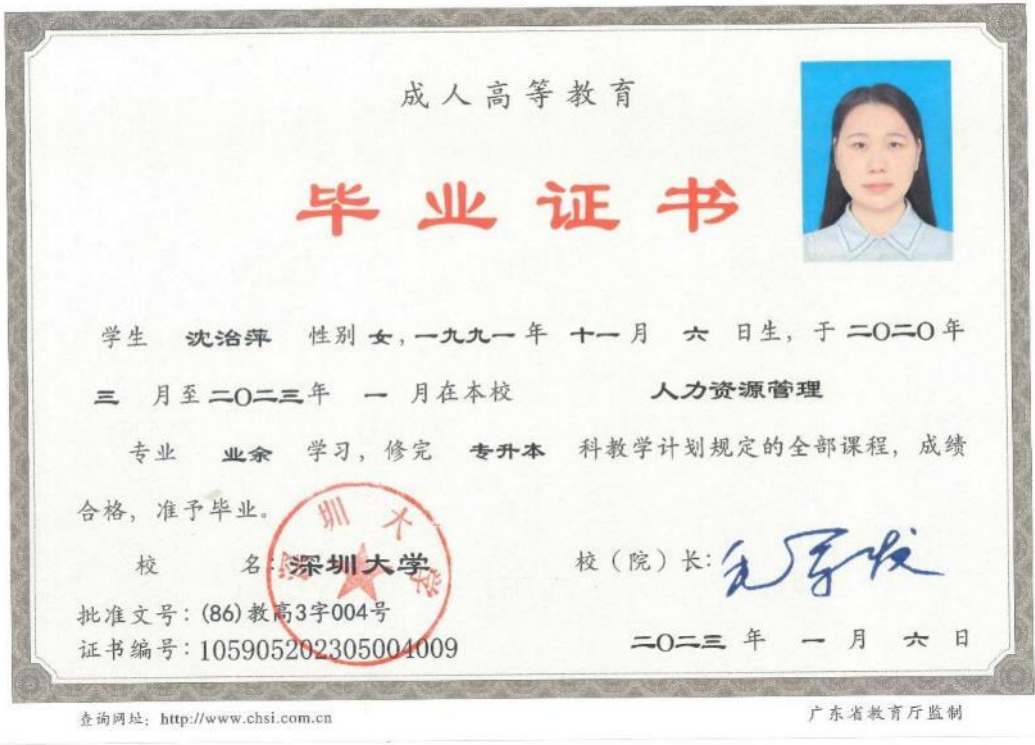 成人高等教育
毕业证书
学生 沈治萍 性别 女，一九九一年 十一月 六 日生，于 二〇二〇年
三 月至二〇二三年 一 月在本校 人力资源管理
专业 业余 学习，修完 专升本 科教学计划规定的全部课程，成绩
合格，准予毕业。
深圳大学
校 名：深圳大学 校（院）长：
批准文号：(86)教高3字004号
证书编号：105905202305004009
二〇二三 年 一 月 六 日
查询网址：http://www.chsi.com.cn 广东省教育厅监制